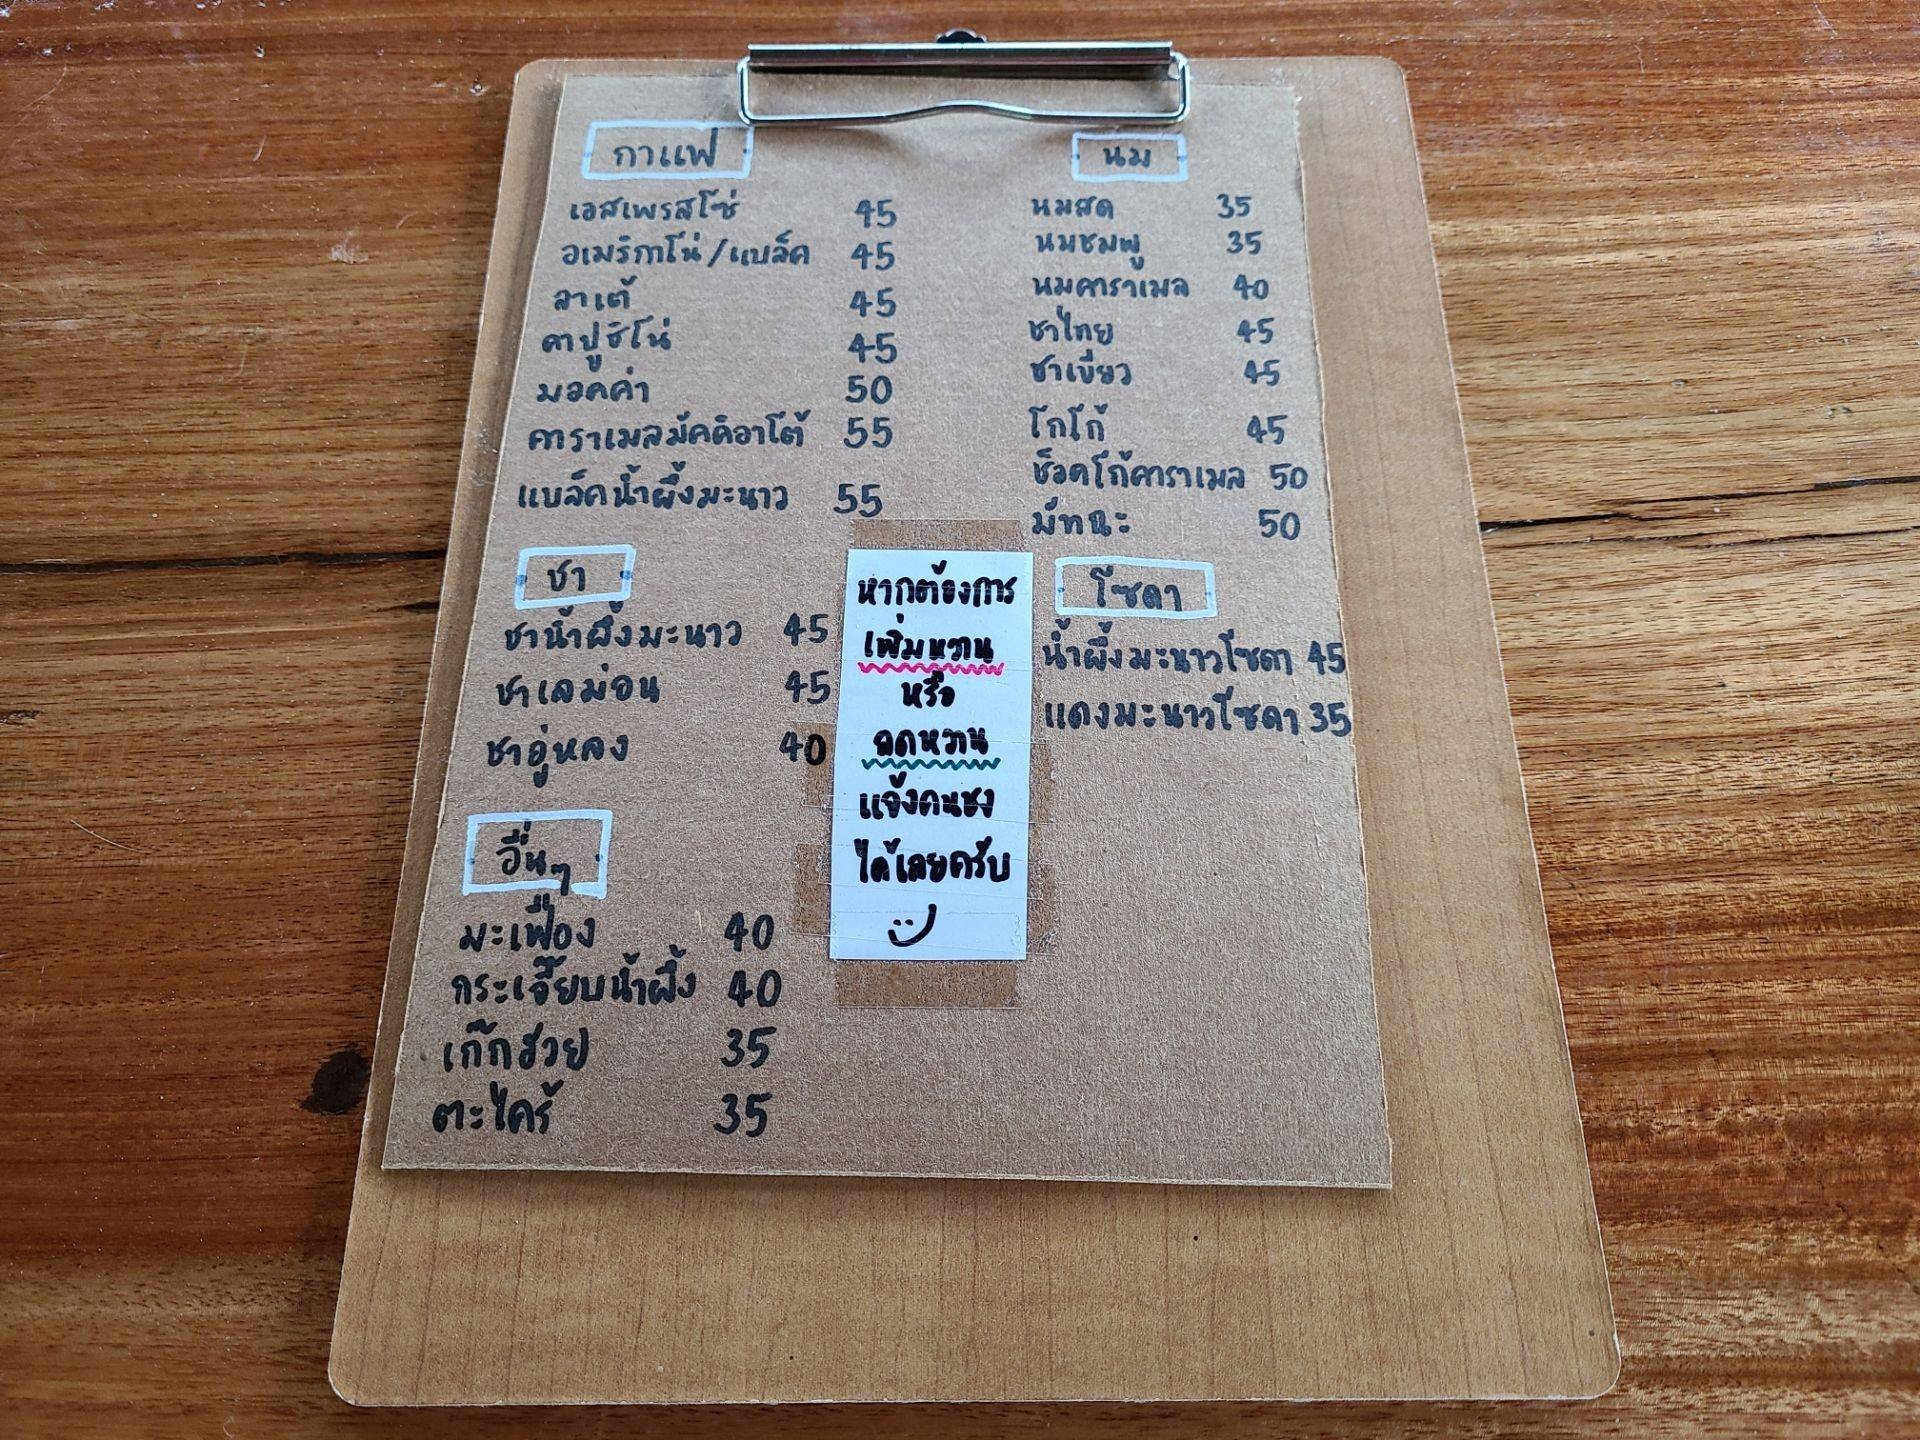 กาแฟ
เอสเพรสโซ่ 45
อเมริกาโน่/แบล็ค 45
ลาเต้ 45
คาปูชิโน่ 45
มอคค่า 50
คาราเมลมัคคิอาโต้ 55
แบล็คน้ำผึ้งมะนาว 55
ชา
ชาน้ำผึ้งมะนาว 45
ชาเลม่อน 45
ชาอู่หลง 40
อื่นๆ
มะเฟือง 40
กระเจี๊ยบน้ำผึ้ง 40
เก๊กฮวย 35
ตะไคร้ 35
หากต้องการ
เพิ่มหวาน
หรือ
ลดหวาน
แจ้งคนชง
ได้เลยครับ
นม
นมสด 35
นมชมพู 35
นมคาราเมล 40
ชาไทย 45
ชาเขียว 45
โกโก้ 45
ช็อคโก้คาราเมล 50
มัทฉะ 50
โซดา
น้ำผึ้งมะนาวโซดา 45
แดงมะนาวโซดา 35